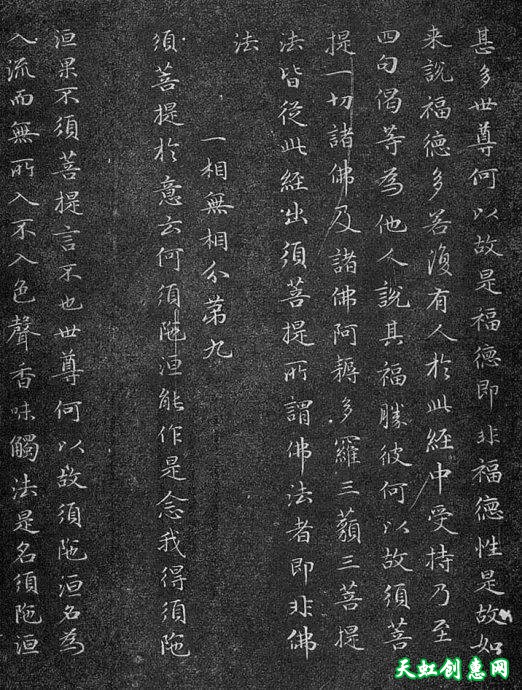 甚多世尊何以故是福德即非福德性是故如
来說福德多若復有人於此経中受持乃至
四句偈等為他人說其福勝彼何以故須菩
提一切諸佛及諸佛阿耨多羅三藐三菩提
法皆從此経出須菩提所謂佛法者即非佛
法
一相無相分第九
須菩提於意云何須陁洹能作是念我得須陁
洹果不須菩提言不也世尊何以故須陁洹名為
入流而無所入不入色聲香味觸法是名須陁洹
天虹创惠网